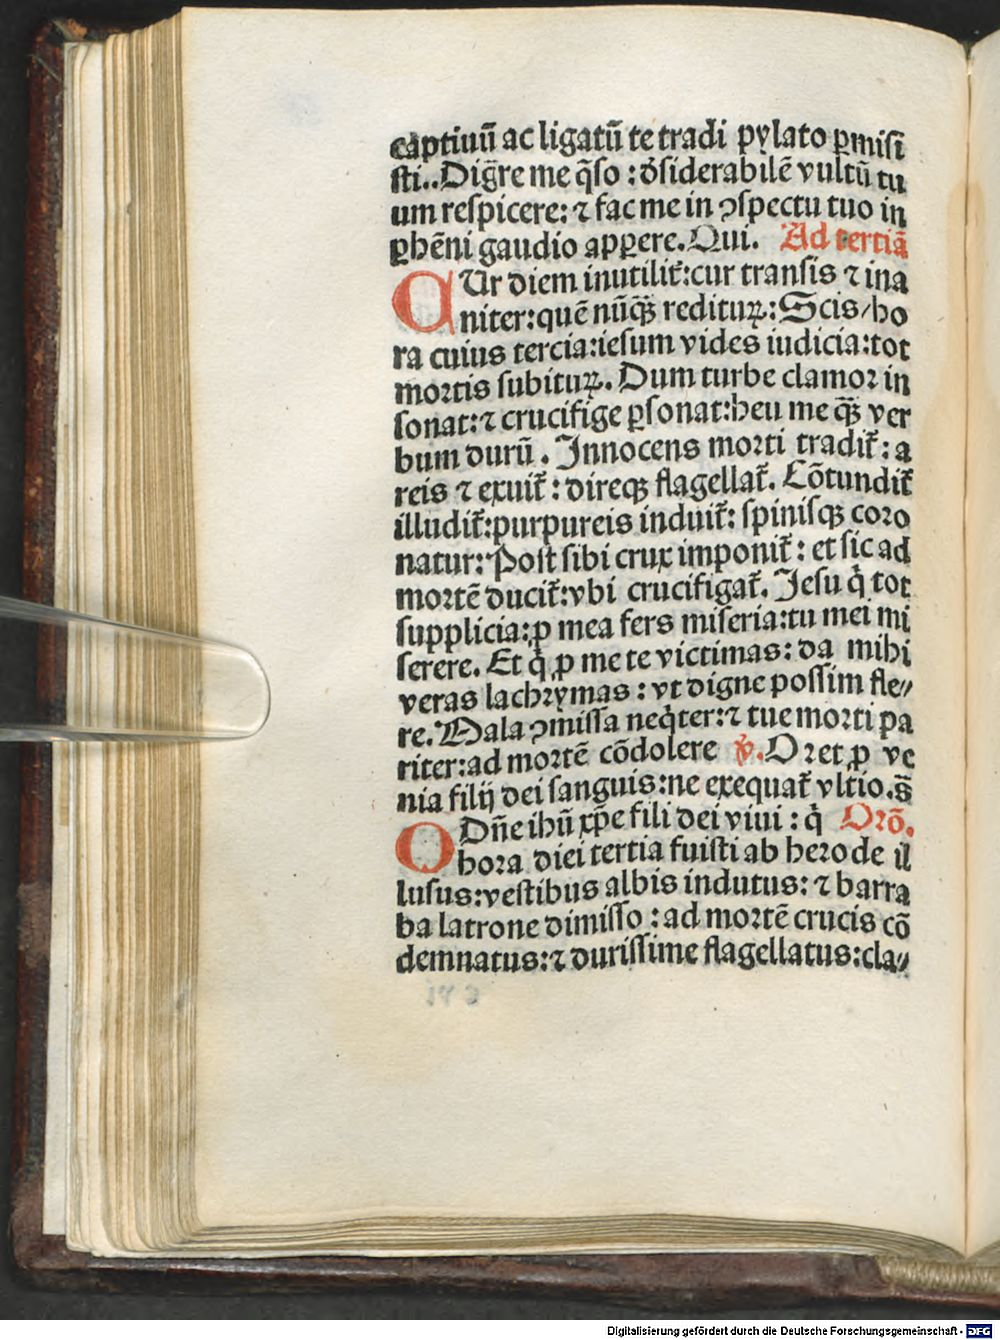 captiuū ac ligatū te tradi pylato ꝑmisi
sti..Dig̃re me q̄so : ꝺ̾siderabilē vultū tu
um respicere: ⁊ fac me in ꝯspectu tuo in
ꝑhēni gaudio apꝑere. Qui. Ad tertiā
CUr diem inutilit̃: cur transis ⁊ ina
niter: quē nūqꝫ redituꝝ: Scis/ho
ra cuius tercia: iesum vides iudicia: tot
moꝛtis subituꝝ. Dum turbe clamoꝛ in
sonat: ⁊ crucifige ꝑsonat: heu me qꝫ̄ ver
bum durū. Innocens moꝛti tradit̃: a
reis ⁊ exuit̃: direqꝫ flagellat̃. Cōtundit̃
illudit̃: purpureis induit̃: spinisqꝫ coꝛo
natur: Post sibi crux imponit̃: et sic ad
moꝛtē ducit̃: vbi crucifigat̃. Jesu q̇ tot
supplicia: ꝓ mea fers miseria: tu mei mi
serere. Et q̇ ꝓ me te victimas: da mihi
veras lachꝛymas: vt digne possim fle⸗
re. Mala ꝯmissa neq̇ter: ⁊ tue moꝛti pa
riter: ad moꝛtē cōdolere ℣. Oꝛet ꝓ ve
nia filij dei sanguis: ne exequat̃ vltio. s̄
O Dn̄e ihū xp̄e fili dei viui: q̇ Oꝛō.
hoꝛa diei tertia fuisti ab heꝛode il
lusus: vestibus albis indutus: ⁊ barra
ba latrone dimisso: ad moꝛtē crucis cō
demnatus: ⁊ durissime flagellatus: cla⸗
Digitalisierung gefördert durch die Deutsche Forschungsgemeinschaft - DFG